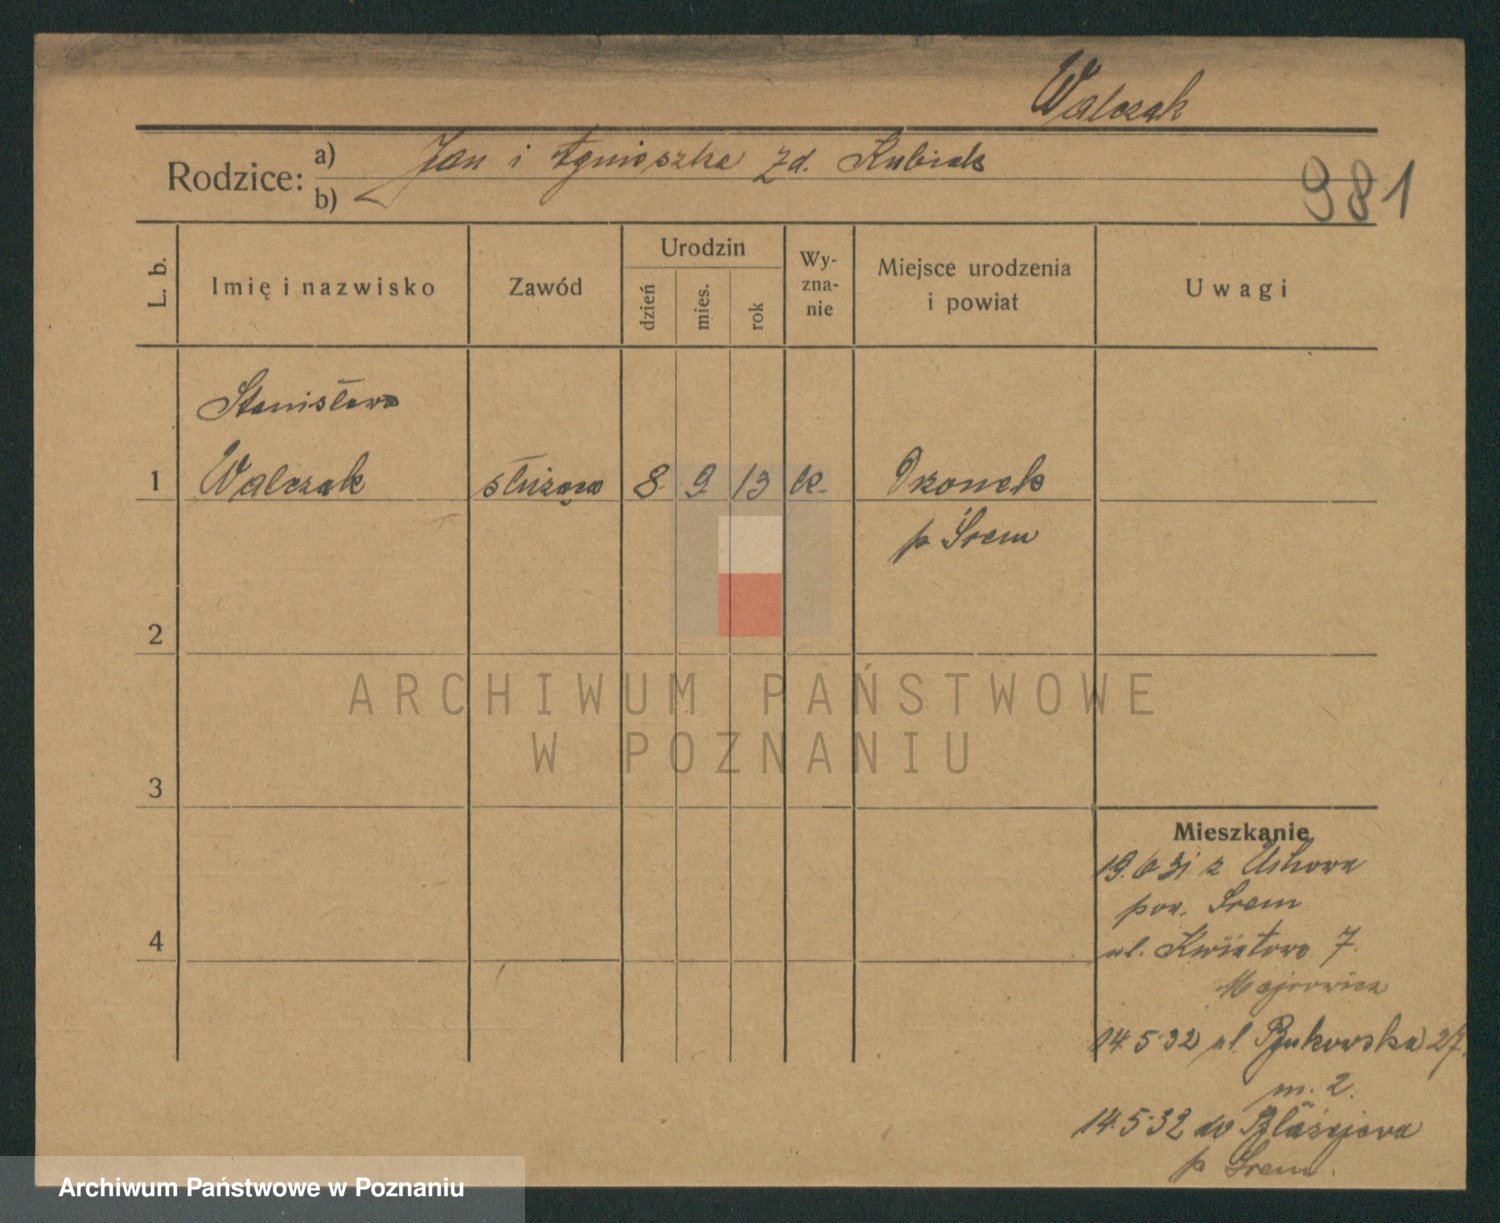 Walczak
Rodzice: a) Jan i Agnieszka zd. Kubiak
b)
981
L. b.
Imię i nazwisko
Zawód
Urodzin
dzień
mies.
rok
Wy-
zna-
nie
Miejsce urodzenia
i powiat
Uwagi
Stanisława
1 Walczak służąca 8 9 13 k. Dronek
p. Śrem
2
3
4
Mieszkanie
19.6 31 z
pow. Śrem
ul. Kwiatowa 7.
Majrowicz
14.5.32 ul. Bukowska 27.
m. 2.
14.5.32 do Błażejewa
p. Śrem.
ARCHIWUM PAŃSTWOWE
W POZNANIU
Archiwum Państwowe w Poznaniu